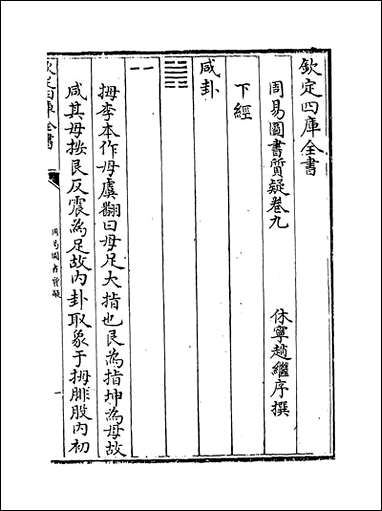 欽定四庫全書
周易圖書質疑卷九
休寧趙繼序撰
下經
咸卦
䷞
一一
拇李本作母虞翻曰母足大指也艮為指坤為母故
咸其母按艮反震為足故内卦取象于拇腓股内初
欽定四庫全書
周易圖書質疑
一